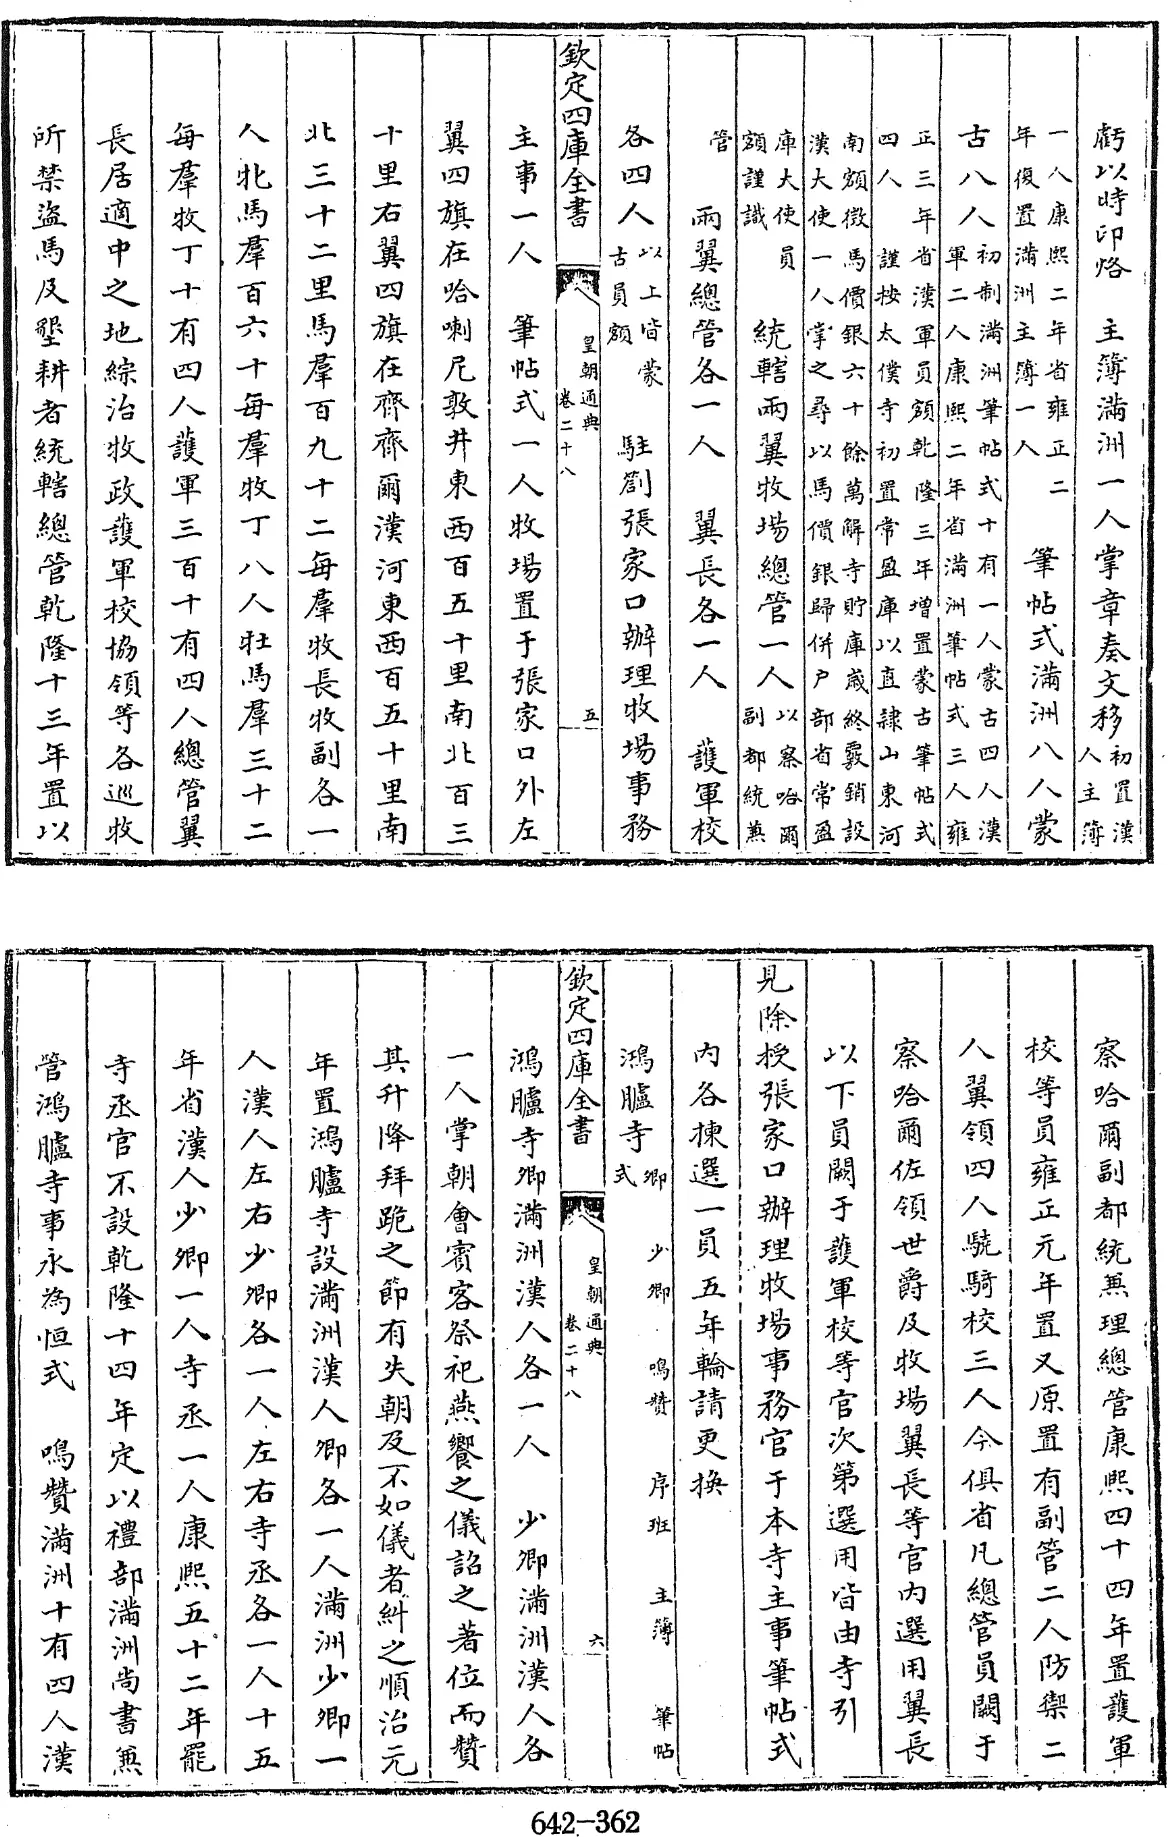 虧以時印烙　主簿滿洲一人掌章奏文移初置漢人主簿
一人康熙二年省雍正二年復置滿洲主簿一人　筆帖式滿洲八人蒙
古八人初制滿洲筆帖式十有一人蒙古四人漢軍二人康熙二年省滿洲筆帖式三人雍
正三年省漢軍員額乾隆三年增置蒙古筆帖式四人　謹按太僕寺初置常盈庫以直隷山東河
南額徵馬價銀六十餘萬解寺貯庫歲終覈銷設漢大使一人掌之尋以馬價銀歸併戶部省常盈
庫大使員額謹識　統轄兩翼牧場總管一人以察哈爾副都統兼
管　兩翼總管各一人　翼長各一人　護軍校
各四人以上皆蒙古員額　駐劄張家口辦理牧場事務
欽定四庫全書　皇朝通典卷二十八　五
主事一人　筆帖式一人牧場置于張家口外左
翼四旗在哈喇尼敦井東西百五十里南北百三
十里右翼四旗在齊齊爾漢河東西百五十里南
北三十二里馬羣百九十二每羣牧長牧副各一
人牝馬羣百六十每羣牧丁八人牡馬羣三十二
每羣牧丁十有四人護軍三百十有四人總管翼
長居適中之地綜治牧政護軍校協領等各巡牧
所禁盜馬及墾耕者統轄總管乾隆十三年置以
察哈爾副都統兼理總管康熙四十四年置護軍
校等員雍正元年置又原置有副管二人防禦二
人翼領四人驍騎校三人今俱省凡總管員闕于
察哈爾佐領世爵及牧場翼長等官內選用翼長
以下員闕于護軍校等官次第選用皆由寺引
見除授張家口辦理牧場事務官于本寺主事筆帖式
內各揀選一員五年輪請更換
鴻臚寺卿　少卿　鳴贊　序班　主簿　筆帖式
欽定四庫全書　皇朝通典卷二十八　六
鴻臚寺卿滿洲漢人各一人　少卿滿洲漢人各
一人掌朝會賓客祭祀燕饗之儀詔之著位而贊
其升降拜跪之節有失朝及不如儀者糾之順治元
年置鴻臚寺設滿洲漢人卿各一人滿洲少卿一
人漢人左右少卿各一人左右寺丞各一人十五
年省漢人少卿一人寺丞一人康熙五十二年罷
寺丞官不設乾隆十四年定以禮部滿洲尚書兼
管鴻臚寺事永為恒式　鳴贊滿洲十有四人漢
642-362